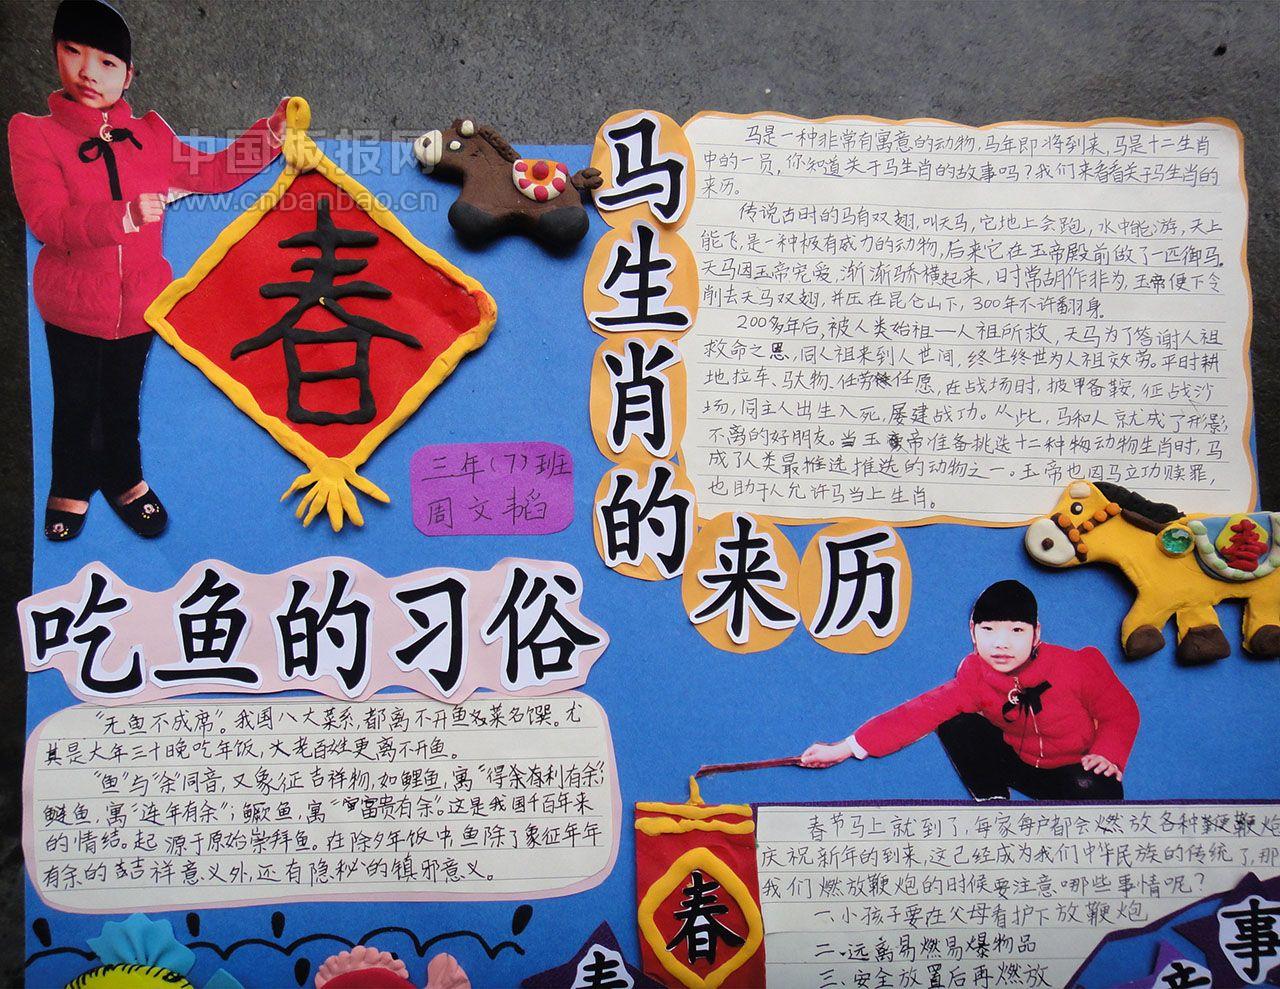 中国板报网
www.cnbanbao.cn
春
三年(7)班
周文韬
马生肖的来历
马是一种非常有寓意的动物,马年即将到来,马是十二生肖
中的一员,你知道关于马生肖的故事吗?我们来看看关于马生肖的
来历。
传说古时的马有双翅,叫天马,它地上会跑,水中能游,天上
能飞,是一种极有威力的动物,后来它在玉帝殿前做了一匹御马。
天马因玉帝宠爱,渐渐骄横起来,日时常胡作非为,玉帝便下令
削去天马双翅,并压在昆仑山下,300年不许翻身。
200多年后,被人类始祖—人祖所救,天马为了答谢人祖
救命之恩,同人祖来到人世间,终生终世为人祖效劳。平时耕
地拉车、驮物、任劳任愿,在战场时,披甲备鞍,征战沙
场,同主人出生入死,屡建战功。从此,马和人就成了形影
不离的好朋友。当玉帝准备挑选十二种动物生肖时,马
成了人类最推选推选的动物之一。玉帝也因马立功赎罪,
也助于人允许马当上生肖。
吃鱼的习俗
“无鱼不成席”。我国八大菜系,都离不开鱼名菜名馔。尤
其是大年三十晚吃年饭,大老百姓更离不开鱼。
“鱼”与“余”同音,又象征吉祥物,如鲤鱼,寓“得余有利有余”;
鲢鱼,寓“连年有余”;鳜鱼,寓“富贵有余”。这是我国千百年来
的情结。起源于原始崇拜鱼。在除夕年饭中,鱼除了象征年年
有余的吉祥意义外,还有隐秘的镇邪意义。
春
春节马上就到了,每家每户都会燃放各种鞭炮
庆祝新年的到来,这已经成为我们中华民族的传统了,那
我们燃放鞭炮的时候要注意哪些事情呢?
一.小孩子要在父母看护下放鞭炮
二.远离易燃易爆物品
三.安全放置后再燃放
事
意
春